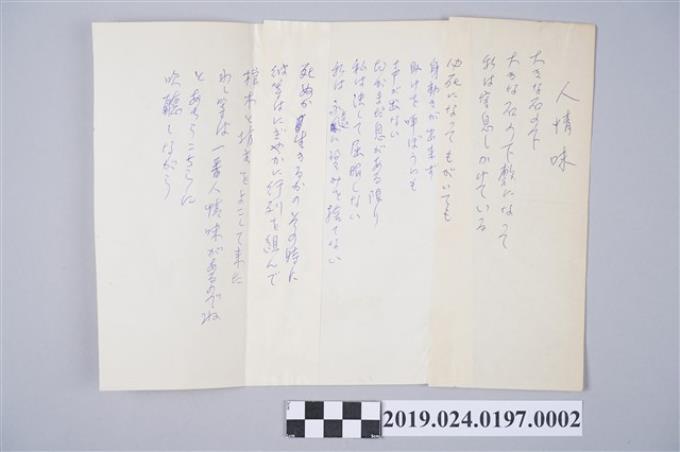 人情味
大きな石の下
大きな石の下敷になって
私は窒息しかけている
必死になってもがいても
身動きが出来ず
助けを呼ばうにも
声が出ない
だがまだ息がある限り
私は決して屈服しない
私は永遠に望みを捨てない
死ぬか生きるかのその時に
彼等はにぎやかに行列を組んで
棺木と坊主をよこして来た
わし等は一番人情味があるのでね
とあちらこちらに
吹聴しながら
2019.024.0197.0002